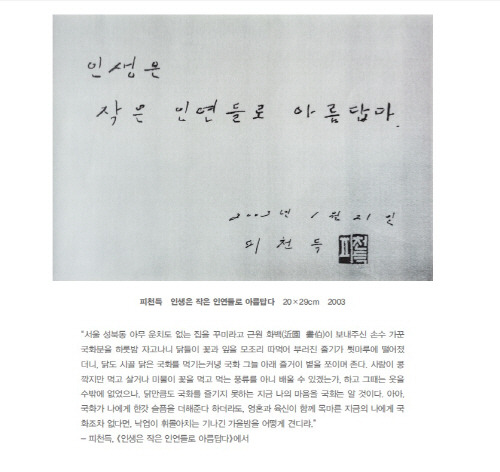 인생은
작은 인연들로 아름답다.
2003년 1월 21일
피천득
피천득 인생은 작은 인연들로 아름답다 20×29cm 2003
"서울 성북동 아무 운치도 없는 집을 꾸미라고 근원 화백(近園 畵伯)이 보내주신 손수 가꾼
국화분을 하룻밤 자고나니 닭들이 꽃과 잎을 모조리 따먹어 부러진 줄기가 툇마루에 떨어졌
더니, 닭도 시골 닭은 국화를 먹기는커녕 국화 그늘 아래 졸거이 볕을 쪼이며 존다. 사람이 콩
깍지만 먹고 살거나 미물이 꽃을 먹고 먹는 풍류를 아니 배울 수 있겠는가, 하고 그때는 웃을
수밖에 없었으나. 닭만큼도 국화를 즐기지 못하는 지금 나의 마음을 국화는 알 것이다. 아아.
국화가 나에게 한갓 슬픔을 더해준다 하더라도, 영혼과 육신이 함께 목마른 지금의 나에게 국
화조차 없다면, 낙엽이 휘몰아치는 기나긴 가을밤을 어떻게 견디랴."
– 피천득, 《인생은 작은 인연들로 아름답다》에서